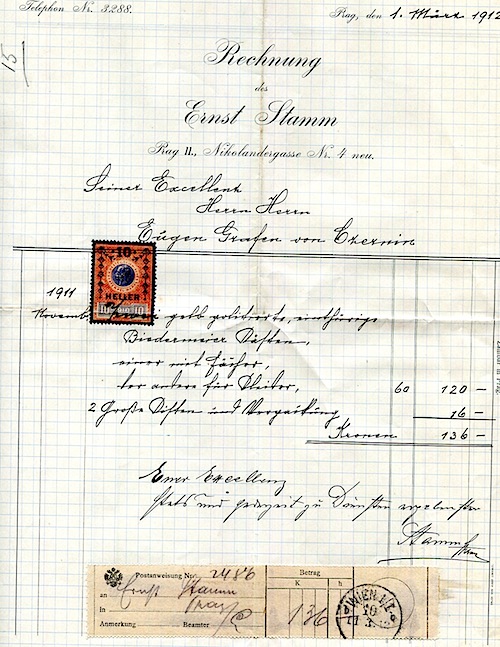 Telephon Nr. 3288.
Prag, den 1. März 1912
15
Rechnung
des
Ernst Stamm
Prag II., Nikolandergasse Nr. 4 neu.
Seiner Excellenz
Herrn Herrn
Eugen Grafen von Czernin
10
HELLER
10 10
1911
November gelb polietirte, einthürige
Biedermeier Kästen,
einer mit Fächer,
der andere für Kleider, 60 120 –
2 Große Kisten und Verpackung 16 –
Kronen 136 –
Euer Excellenz
stets und jederzeit zu Diensten
Stamm
Postanweisung Nr. 2486
Betrag
K h
an Ernst Stamm
in Prag
136
Anmerkung Beamter
WIEN